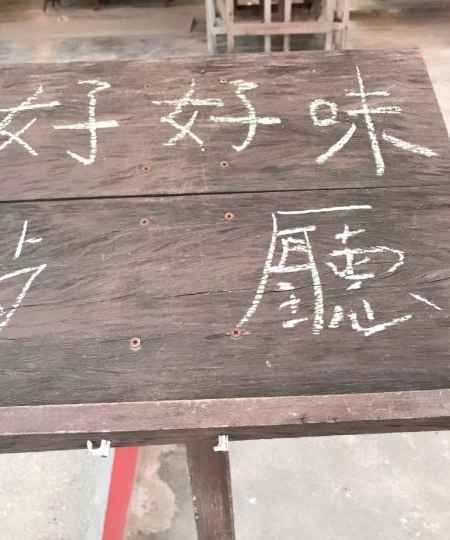 好好味
廳